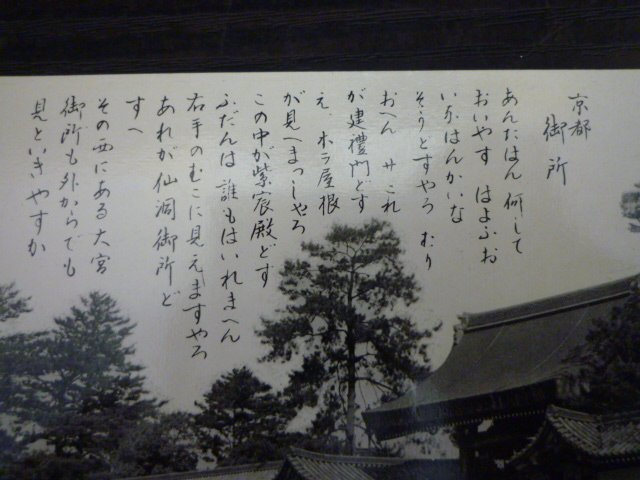 京都
御所
あんたはん 何して
おいやす はよふお
いなはんかいな
そうどすやろ むり
おへん サ これ
が建禮門どす
え ホラ屋根
が見へまっしゃろ
この中が紫宸殿どす
ふだんは 誰もはいれまへん
右手のむこに見えますやろ
あれが仙洞御所ど
すへ
その西にある大宮
御所も外からでも
見といきやすか